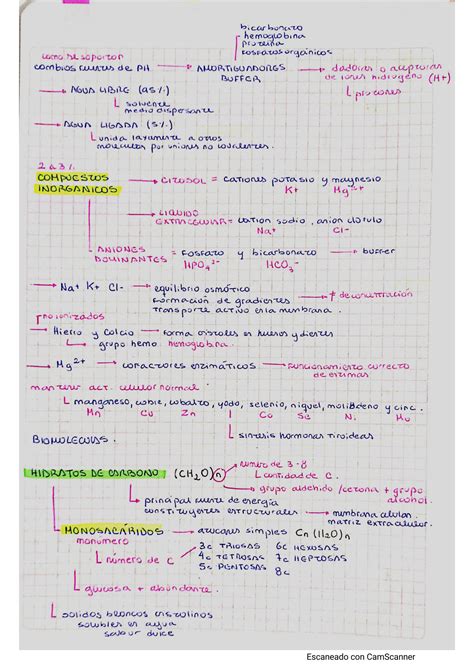 bicarbonato
hemoglobina
proteina
fosfatos orgánicos
como se soportan
cambios fuertes de PH → AMORTIGUADORES → dadores o aceptores
BUFFER
de iones hidrógeno (H+)
protones
→ AGUA LIBRE (95%)
solvente
medio dispersante
→ AGUA LIGADA (5%)
unida laxamente a otros
moleculas por uniones no covalentes.
2 a 3%
COMPUESTOS
INORGANICOS
→ CITOSOL = cationes potasio y magnesio
K+ Mg2+
→ LIQUIDO
EXTRACELULAR = cation sodio, anion cloruro
Na+ Cl-
ANIONES
DOMINANTES = fosfato y bicarbonato → buffer
HPO4 2- HCO3-
→ Na+ K+ Cl- → equilibrio osmótico
formación de gradientes → # de concentración
transporte activo en la membrana.
no ionizados
→ Hierro y Calcio → forma cristales en huesos y dientes
grupo hemo hemoglobina.
→ Mg2+ → cofactores enzimáticos → funcionamiento correcto
de enzimas
mantener act. celular normal
manganeso, cobre, cobalto, yodo, selenio, niquel, molibdeno y cinc.
Mn Cu Zn I Co Se Ni Mo
sintesis hormonas tiroideas
BIOMOLECULAS.
HIDRATOS DE CARBONO (CH2O)n → numero de 3-8
cantidad de C.
→ grupo aldehido / cetona + grupo
alcohol.
principal fuente de energía
constituyentes estructurales → membrana celular.
matriz extracelular.
MONOSACÁRIDOS → azucares simples Cn(H2O)n
monomero
número de C
3c TRIOSAS 6c HEXOSAS
4c TETROSAS 7c HEPTOSAS
5c PENTOSAS 8c
glucosa + abundante.
solidos blancos cristalinos
solubles en agua
sabor dulce
Escaneado con CamScanner